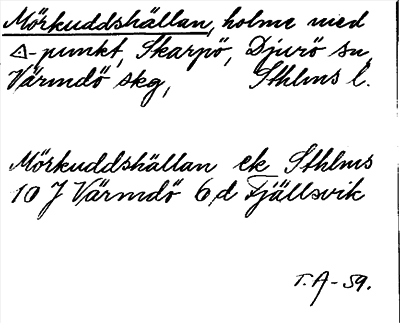 Mörkuddshällan, holme med
△-punkt, Skarpö, Djurö sn,
Värmdö skg, Sthlms l.
Mörkuddshällan ek Sthlms
10 J Värmdö 6 d Fjällsvik
T.A-59.